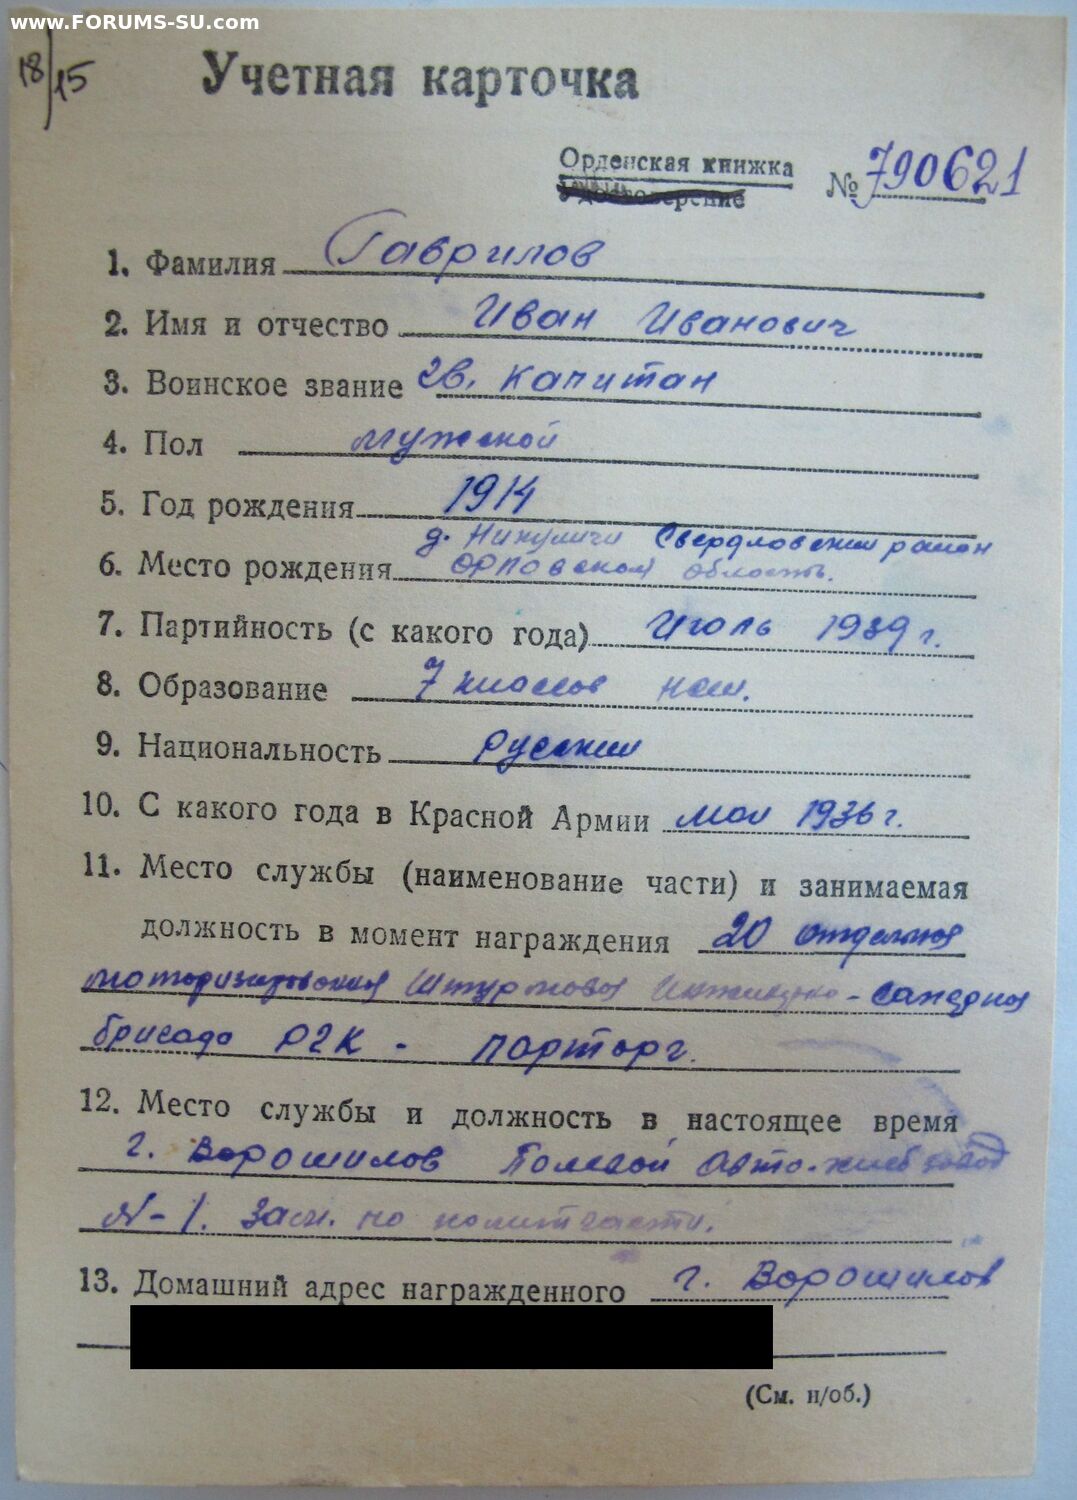 www.FORUMS-SU.com
18/15
Учетная карточка
Орденская книжка
Удостоверение
№ 790621
1. Фамилия Гаврилов
2. Имя и отчество Иван Иванович
3. Воинское звание гв. капитан
4. Пол мужской
5. Год рождения 1914
д. Никуличи Свердловский район
6. Место рождения Орловской область.
7. Партийность (с какого года) Июль 1939 г.
8. Образование 7 классов
9. Национальность Русский
10. С какого года в Красной Армии мая 1936 г.
11. Место службы (наименование части) и занимаемая
должность в момент награждения 20 отдельная
моторизированная Штурмовая Инженерно-саперная
бригада РГК - парторг.
12. Место службы и должность в настоящее время
г. Ворошилов Полевой Авто-хлебзавод
N-1. Зам. по политчасти.
13. Домашний адрес награжденного г. Ворошилов
(См. н/об.)